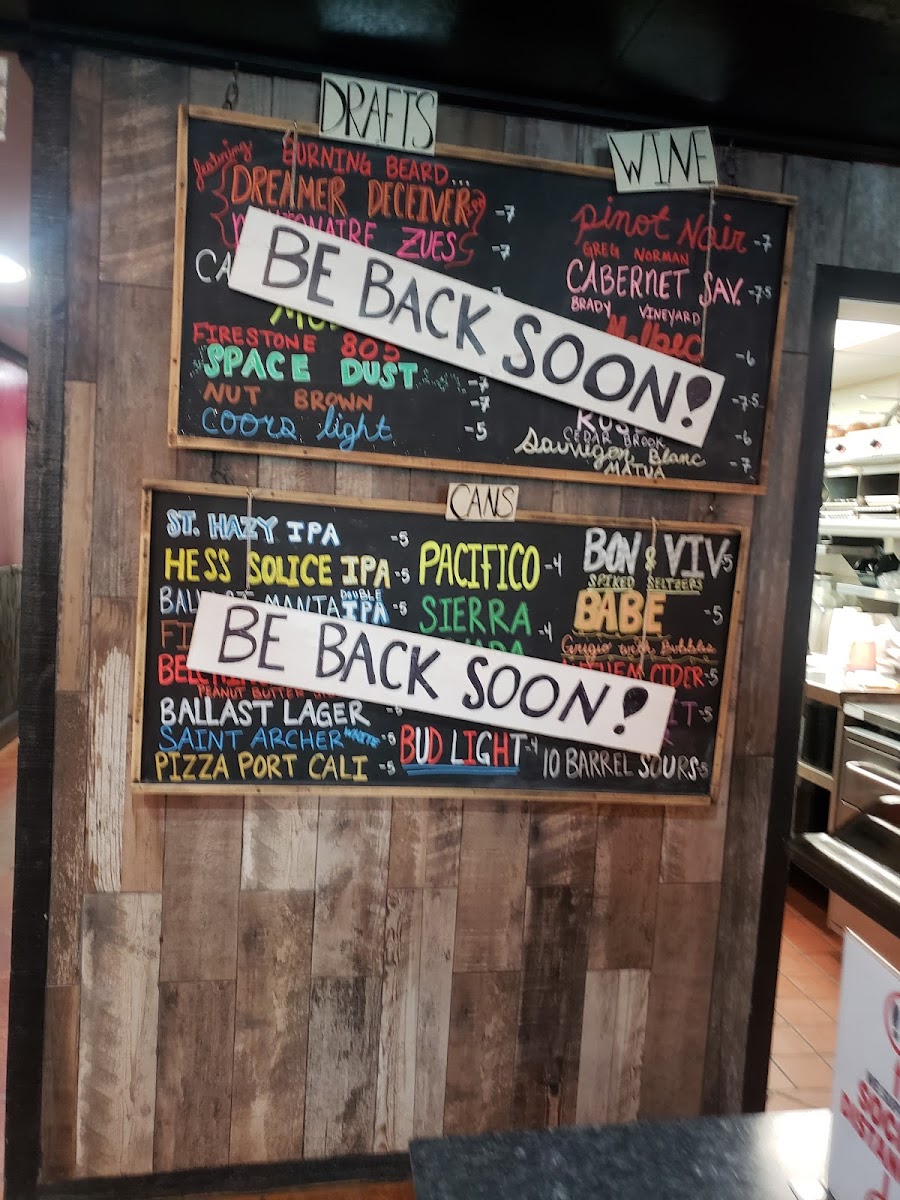 DRAFTS
featuring
BURNING BEARD...
DREAMER DECEIVER -7
ZUES -7
BE BACK SOON!
FIRESTONE 805
SPACE DUST -7
NUT BROWN -7
Coors light -5
WINE
pinot Noir -7
GREG NORMAN
CABERNET SAV. -7.5
BRADY VINEYARD
Malbec -6
-7.5
CEDAR BROOK -6
Sauvignon Blanc -7
MATUA
CANS
ST. HAZY IPA -5
HESS SOLICE IPA -5
MANTA DOUBLE IPA -5
BE BACK SOON!
PEANUT BUTTER
BALLAST LAGER -5
SAINT ARCHER WHITE -5
PIZZA PORT CALI -5
PACIFICO -4
SIERRA -4
BUD LIGHT -4
BON & VIV -5
SPIKED SELTZERS
BABE -5
Grigio with Bubbles
CIDER -5
-5
10 BARREL SOURS -5